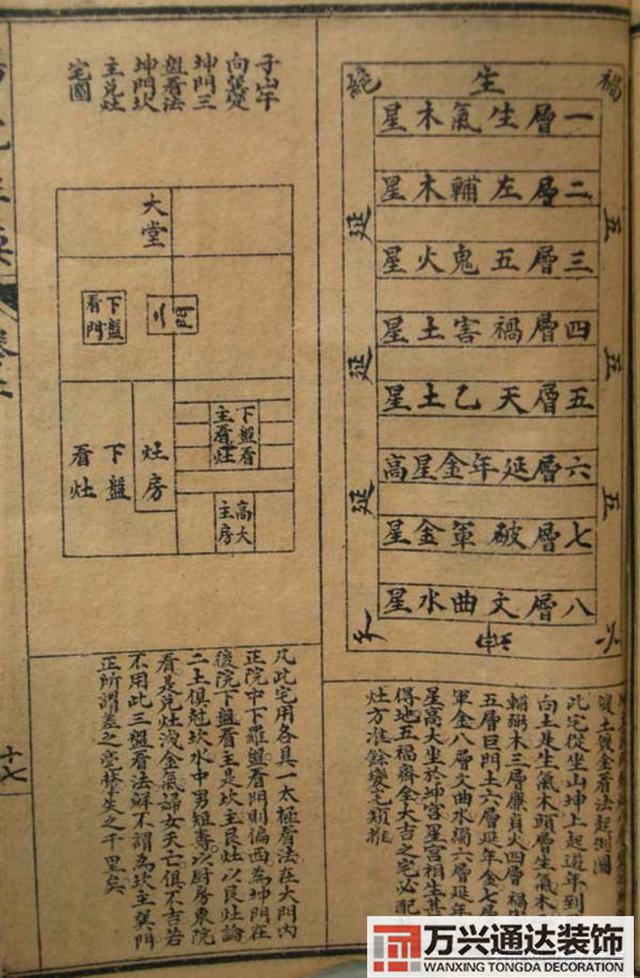 福
生
五
延
五
延
五
延
一層生氣木星
二層左輔木星
三層五鬼火星
四層禍害土星
五層天乙土星
六層延年金星高
七層破軍金星
八層文曲水星
煖土發金看法起例圖
此宅從坐山坤上起遊年到
向土是生氣木頭層生氣木
輔弼木三層廉貞火四層禍
五層巨門土六層延年金七層
軍金八層文曲水獨六層延年
星高大坐於坤宮星宮相生甚
得地五福齊全大吉之宅必配
灶方准餘變宅類推
子山午
向巽變
坤門三
盤看法
坤門坎
主兌灶
宅圖
大堂
門
下盤
看門
灶房
下盤
看灶
下盤看
主看灶
高大
主房
凡此宅用各具一太極看法在大門內
正院中下羅盤看門則偏西為坤門在
後院下盤看主是坎主艮灶以艮灶論
二土俱尅坎水中男短壽以厨房東院
看是兌灶洩金氣婦女夭亡俱不吉若
不用此三盤看法鮮不謂為坎主巽門
正所謂差之毫釐失之千里矣
十七
万兴通达装饰
WANXING TONGDA DECORATION